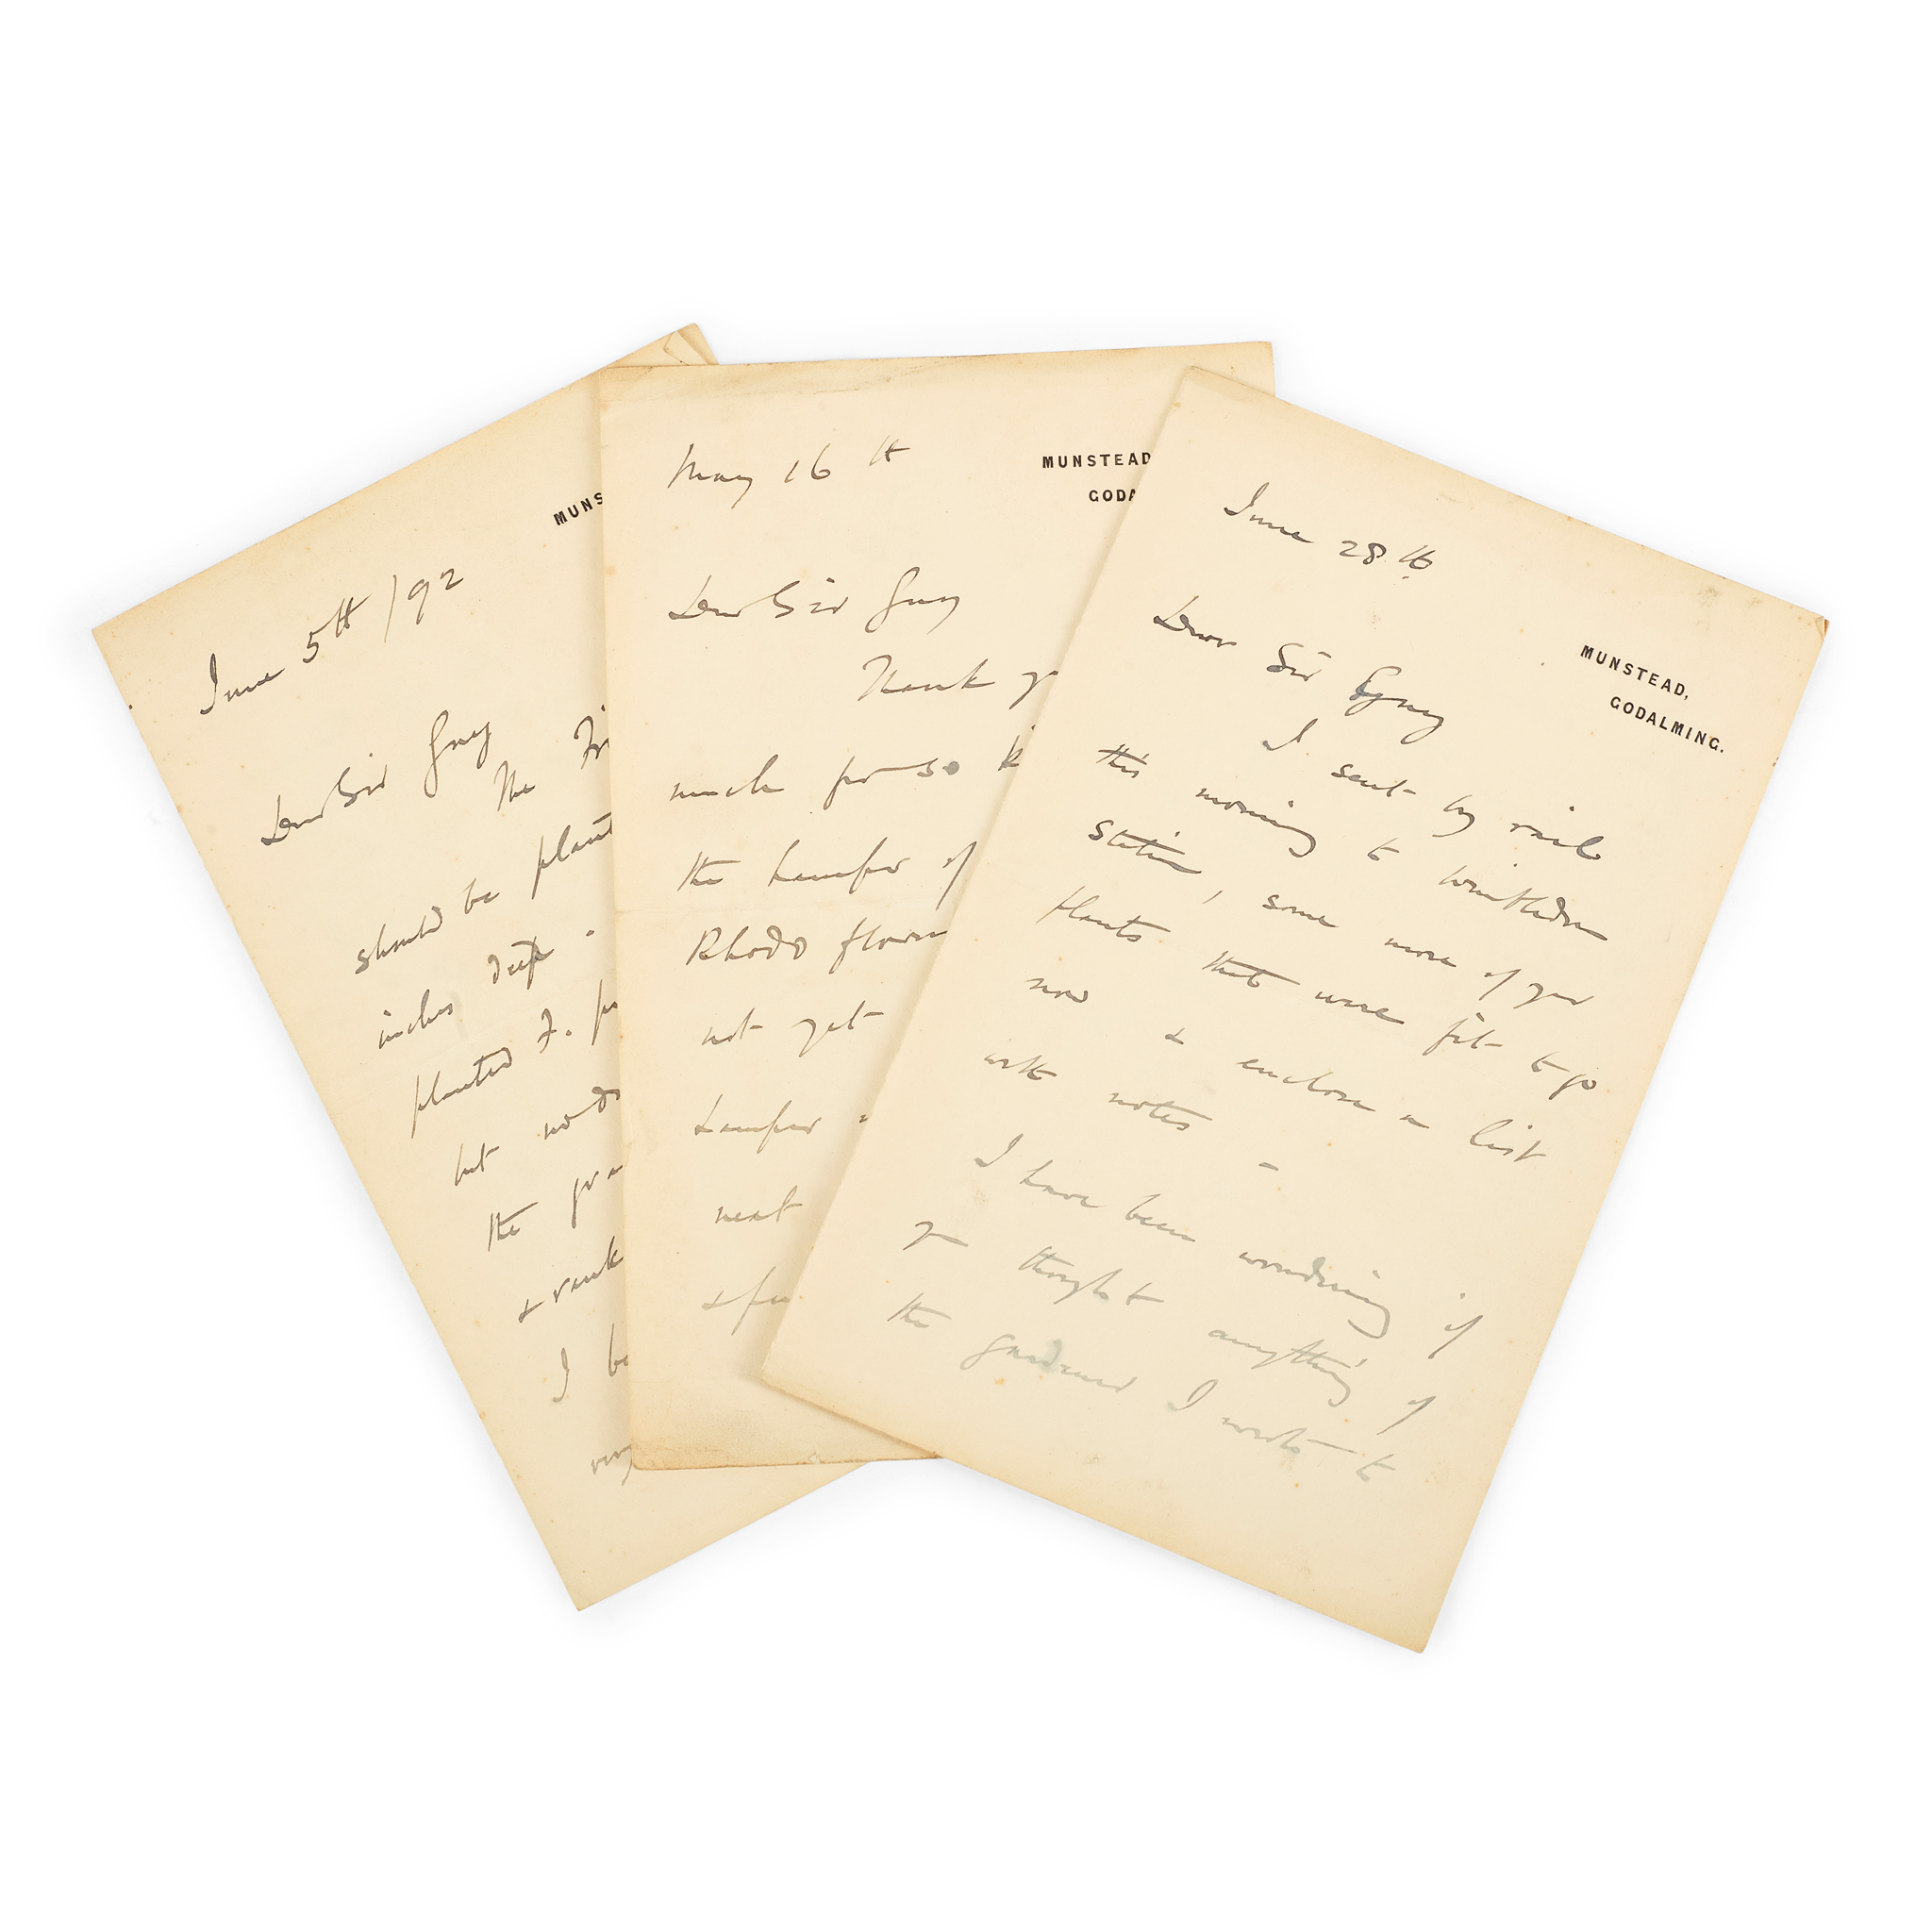 June 5th /92
MUNS
Dear Sir Guy
The
should be plant
inches deep -
planted
but
the
& rank
I be
very
May 16th
MUNSTEAD
GODA
Dear Sir Guy
Thank yo
much for so k
the hamper of
Rhodo flowers
not yet
hamper
next
&
June 28th
MUNSTEAD,
GODALMING.
Dear Sir Guy
I sent by rail
this morning to Wimbledon
Station, some more of your
plants that were fit to go
now & enclose a list
with notes -
I have been wondering if
you thought anything of
the gardener I wrote to